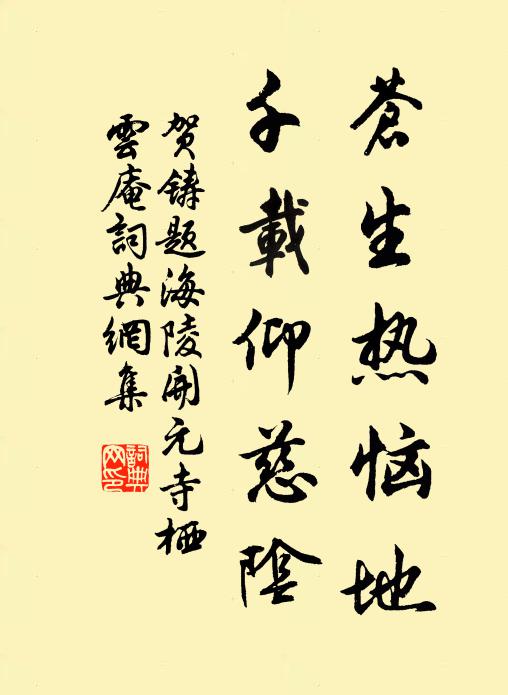 苍生热恼地
千载仰慈阴
贺铸题海陵开元寺栖
云庵词典网集
词典网印